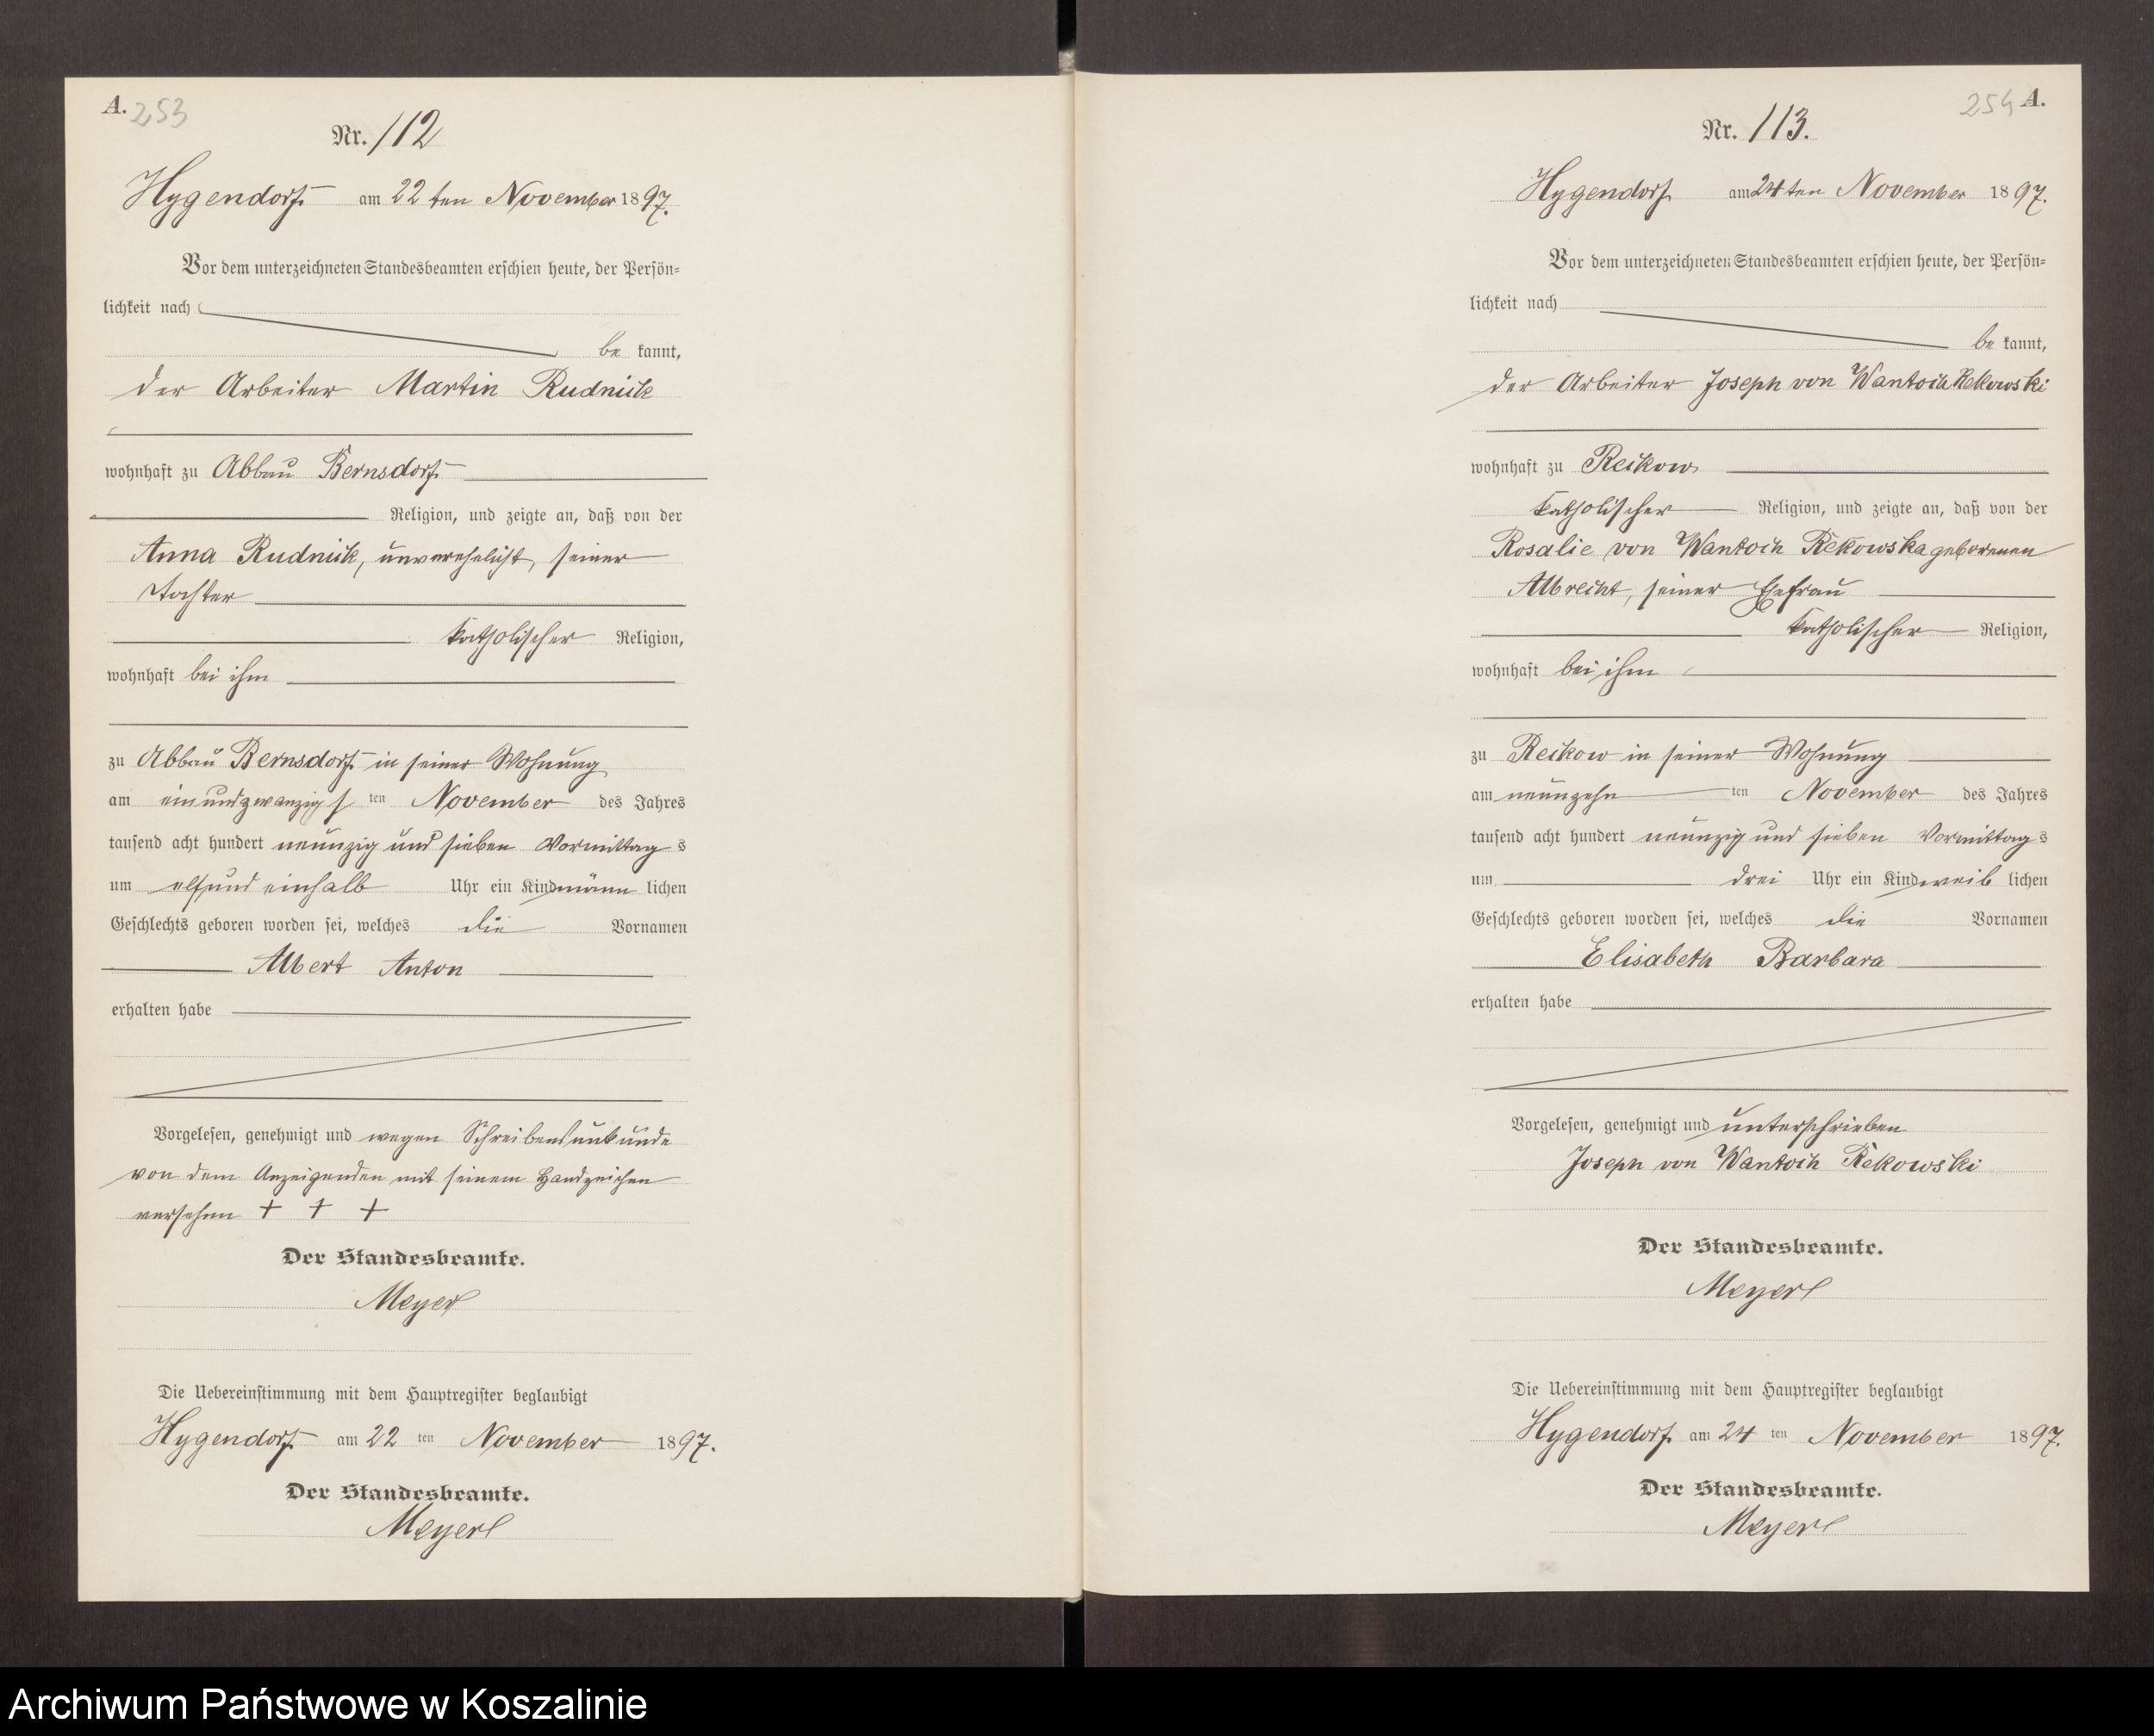 A. 253
Nr. 112
Hygendorf am 22 ten November 1897.
Vor dem unterzeichneten Standesbeamten erschien heute, der Persön-
lichkeit nach
be kannt,
der Arbeiter Martin Rudnick
wohnhaft zu Abbau Bernsdorf
Religion, und zeigte an, daß von der
Anna Rudnick, unverehelicht, seiner
Tochter
katholischer Religion,
wohnhaft bei ihm
zu Abbau Bernsdorf in seiner Wohnung
am einundzwanzigs ten November des Jahres
tausend acht hundert neunzig und sieben Vormittag s
um elf und einhalb Uhr ein Kind männ lichen
Geschlechts geboren worden sei, welches die Vornamen
Albert Anton
erhalten habe
Vorgelesen, genehmigt und wegen Schreibensunkunde
von dem Anzeigenden mit seinem Handzeichen
versehen + + +
Der Standesbeamte.
Meyer
Die Uebereinstimmung mit dem Hauptregister beglaubigt
Hygendorf am 22 ten November 1897.
Der Standesbeamte.
Meyer
254 A.
Nr. 113.
Hygendorf am 24 ten November 1897.
Vor dem unterzeichneten Standesbeamten erschien heute, der Persön-
lichkeit nach
be kannt,
der Arbeiter Joseph von Wantoch Rekowski
wohnhaft zu Reckow
katholischer Religion, und zeigte an, daß von der
Rosalie von Wantoch Rekowska geborenen
Albrecht, seiner Ehefrau
katholischer Religion,
wohnhaft bei ihm
zu Reckow in seiner Wohnung
am neunzehn ten November des Jahres
tausend acht hundert neunzig und sieben Vormittag s
um drei Uhr ein Kind weib lichen
Geschlechts geboren worden sei, welches die Vornamen
Elisabeth Barbara
erhalten habe
Vorgelesen, genehmigt und unterschrieben
Joseph von Wantoch Rekowski
Der Standesbeamte.
Meyer
Die Uebereinstimmung mit dem Hauptregister beglaubigt
Hygendorf am 24 ten November 1897.
Der Standesbeamte.
Meyer
Archiwum Państwowe w Koszalinie